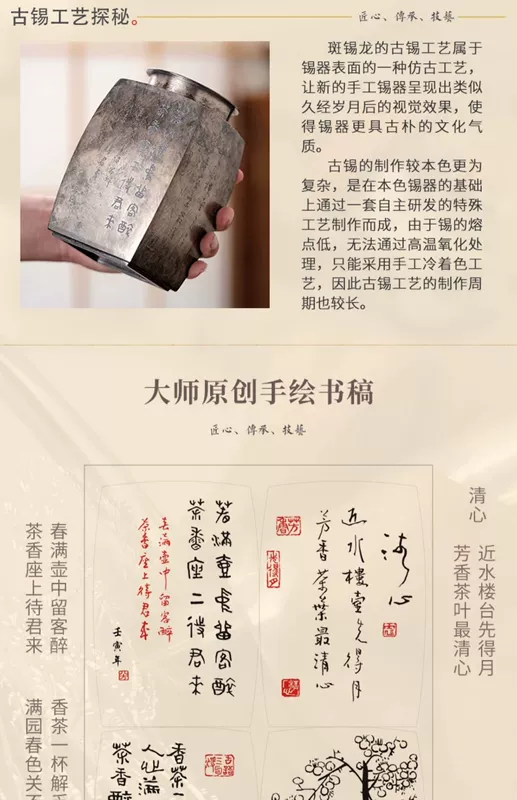 古锡工艺探秘。
匠心、傳承、技藝
斑锡龙的古锡工艺属于
锡器表面的一种仿古工艺,
让新的手工锡器呈现出类似
久经岁月后的视觉效果，使
得锡器更具古朴的文化气
质。
古锡的制作较本色更为
复杂，是在本色锡器的基础
上通过一套自主研发的特殊
工艺制作而成，由于锡的熔
点低，无法通过高温氧化处
理，只能采用手工冷着色工
艺，因此古锡工艺的制作周
期也较长。
大师原创手绘书稿
匠心、傳承、技藝
清心
近水楼台先得月
芳香茶叶最清心
清心
近水樓臺先得月
芳香茶葉最清心
春满壶中留客醉
茶香座上待君来
春滿壺中留客醉
茶香座上待君來
壬寅年
春满壶中留客醉
茶香座上待君来
香茶一杯解
满园春色关不
香茶一
茶香醉